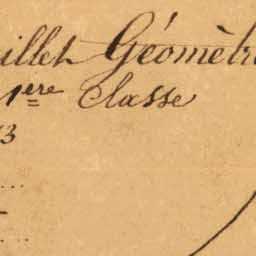 illet Géomètr
1ère Classe
3